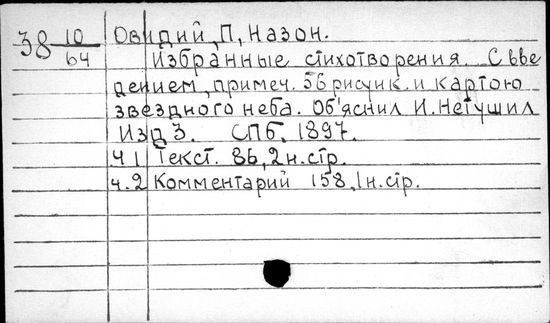 38 10/64 Овидий, П, Назон.
Избранные стихотворения. С вве
дением, примеч. 56 рисунк. и картою
звездного неба. Об'яснил И. Нетушил
Изд 3. СПб, 1897.
Ч 1 Текст. 86, 2 н. стр.
ч. 2 Комментарий 158, 1 н. стр.